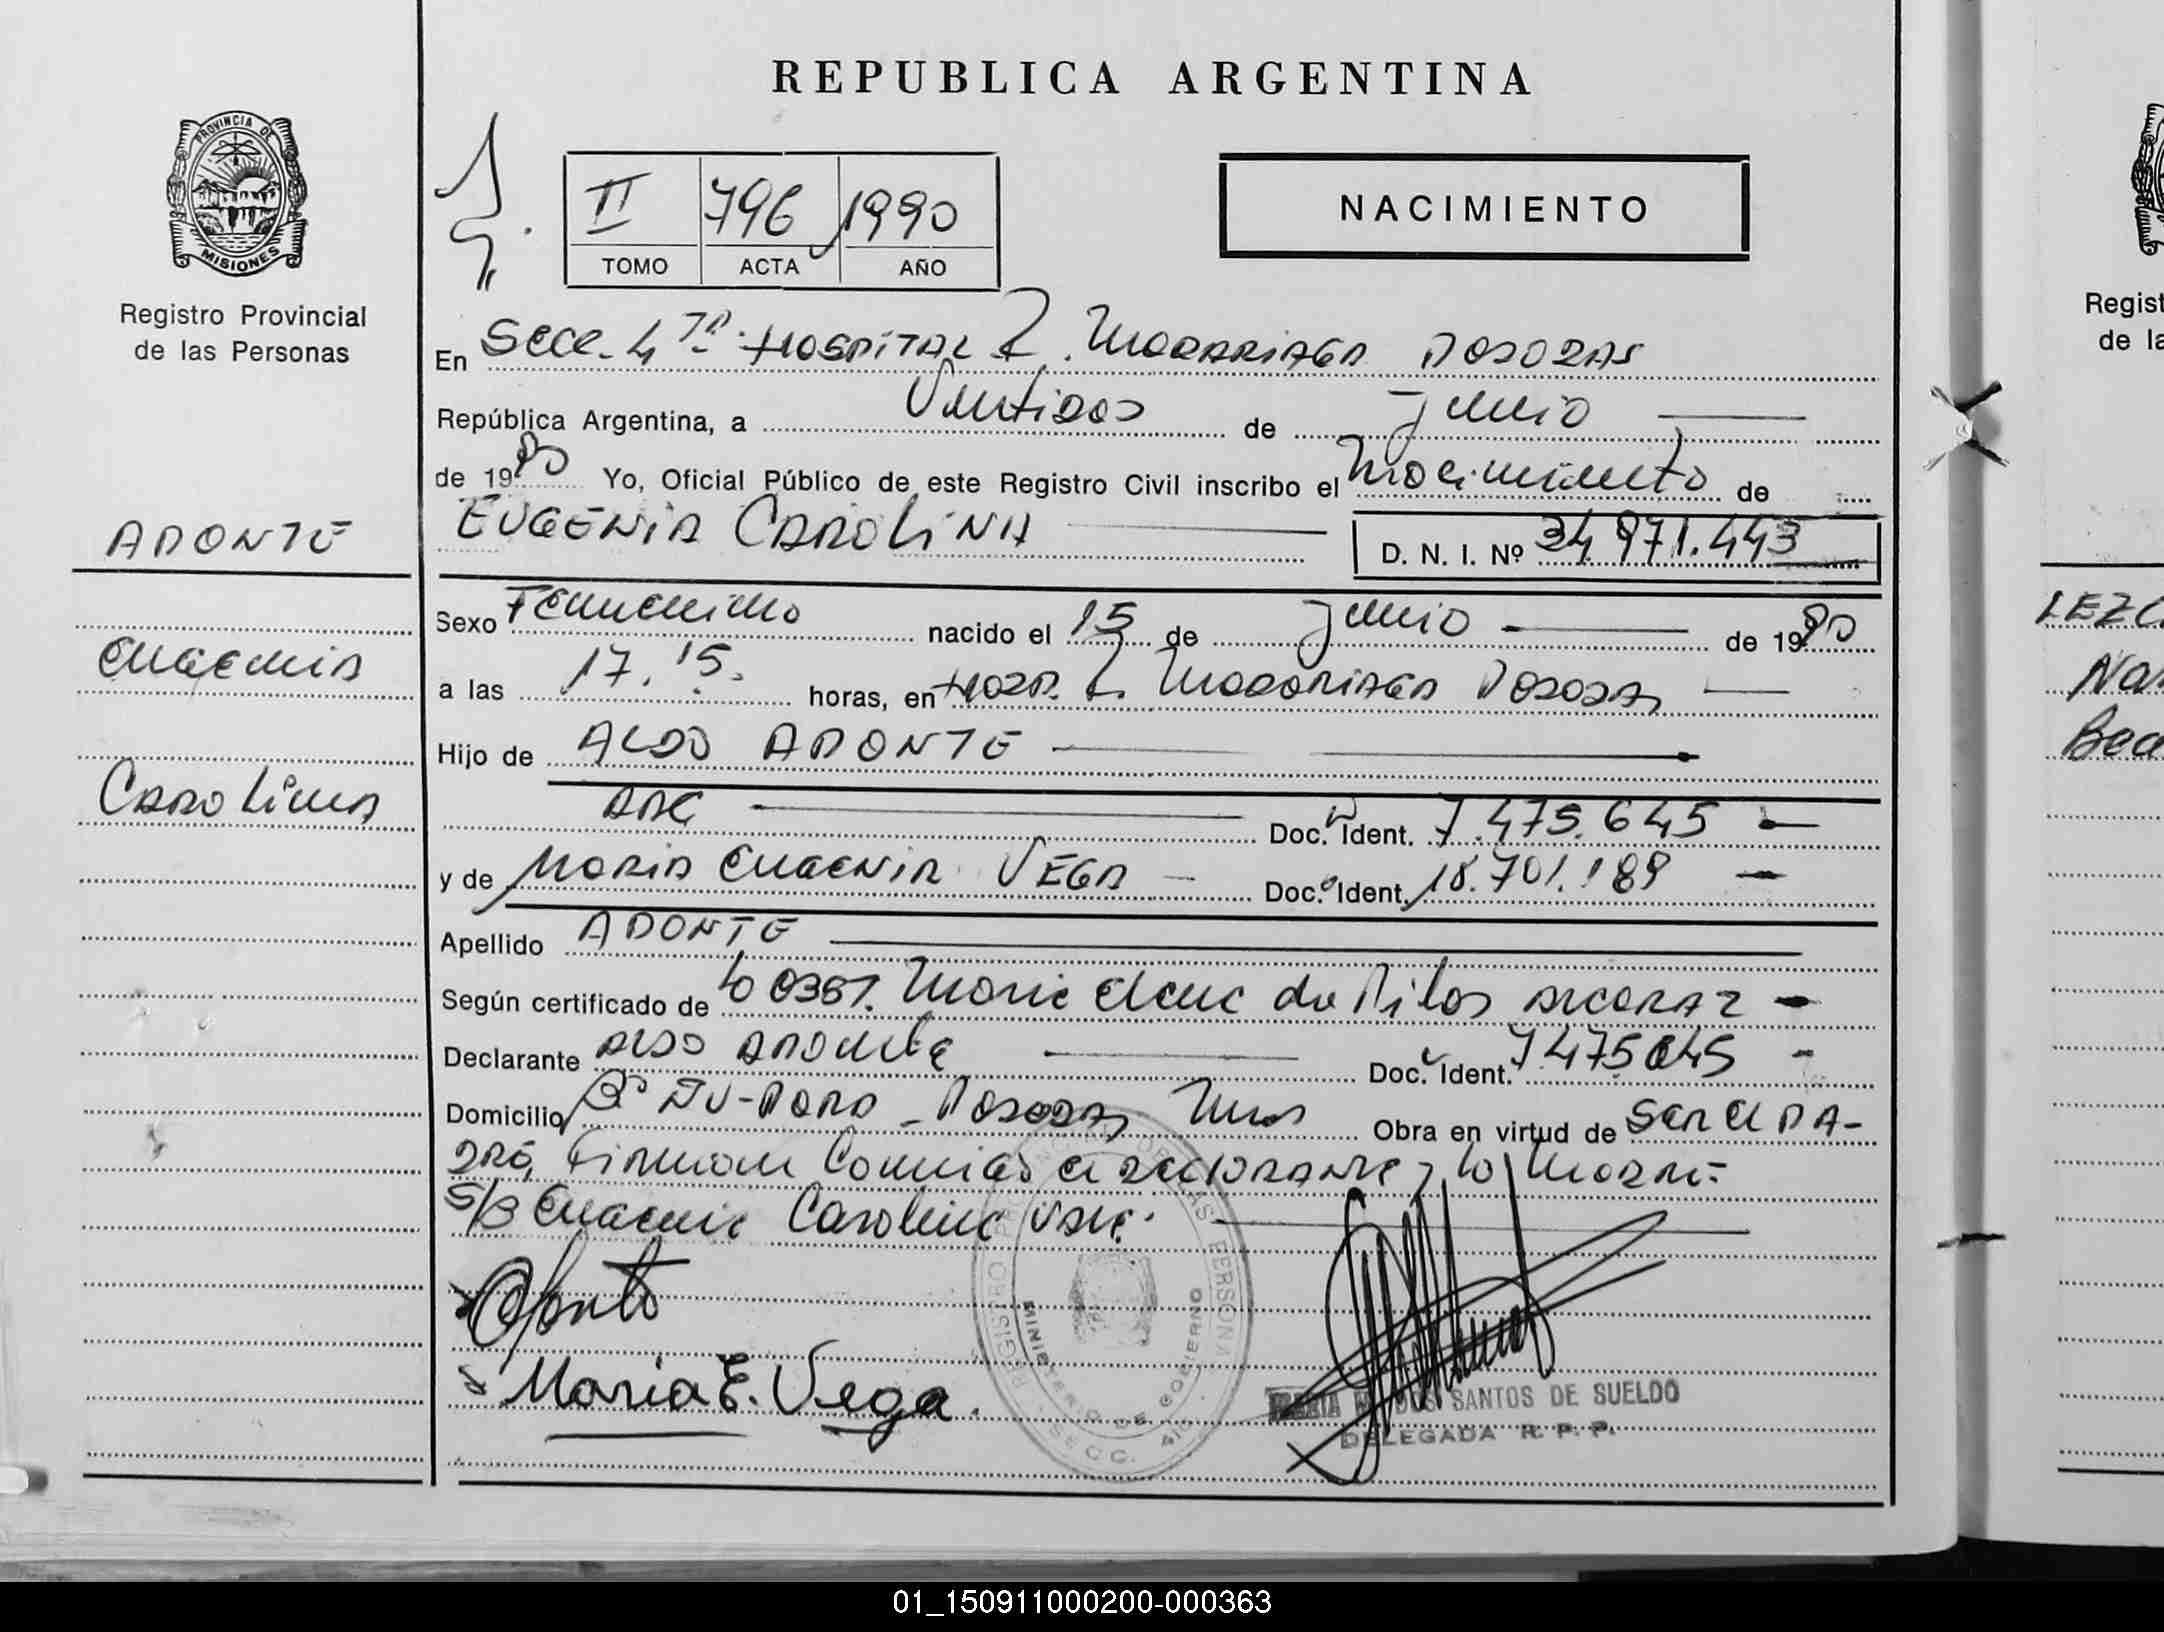 REPUBLICA ARGENTINA
PROVINCIA DE
MISIONES
Registro Provincial
de las Personas
II 796 1990
TOMO ACTA AÑO
NACIMIENTO
En Secc. 4ta. HOSPITAL R. MADARIAGA POSADAS
República Argentina, a Ventidos de junio
de 1990 Yo, Oficial Público de este Registro Civil inscribo el Nacimiento de
EUGENIA CAROLINA
D. N. I. Nº 34.971.443
APONTE
Eugenia
Carolina
Sexo Femenino nacido el 15 de junio de 1990
a las 17.15. horas, en Hosp. R. MADARIAGA POSADAS
Hijo de ALDO APONTE
ARG Doc. Ident. 7.475.645
y de MARIA EUGENIA VEGA Doc. Ident. 18.701.189
Apellido APONTE
Según certificado de la Obst. Maria Elena del Pilar ALCARAZ
Declarante ALDO APONTE Doc. Ident. 7475645
Domicilio Bº POSADAS Mnes Obra en virtud de Ser el PA-
DRE, Firman Conmigo el DECLARANTE y la MADRE-
S/B Eugenia Carolina VALE.
Aponte
Maria E. Vega.
REGISTRO PROVINCIAL DE LAS PERSONAS
MINISTERIO DE GOBIERNO
SECC. 4ta
MARIA DOS SANTOS DE SUELDO
DELEGADA R. P. P.
Regist
de la
LEZC
Na
Bea
01_150911000200-000363